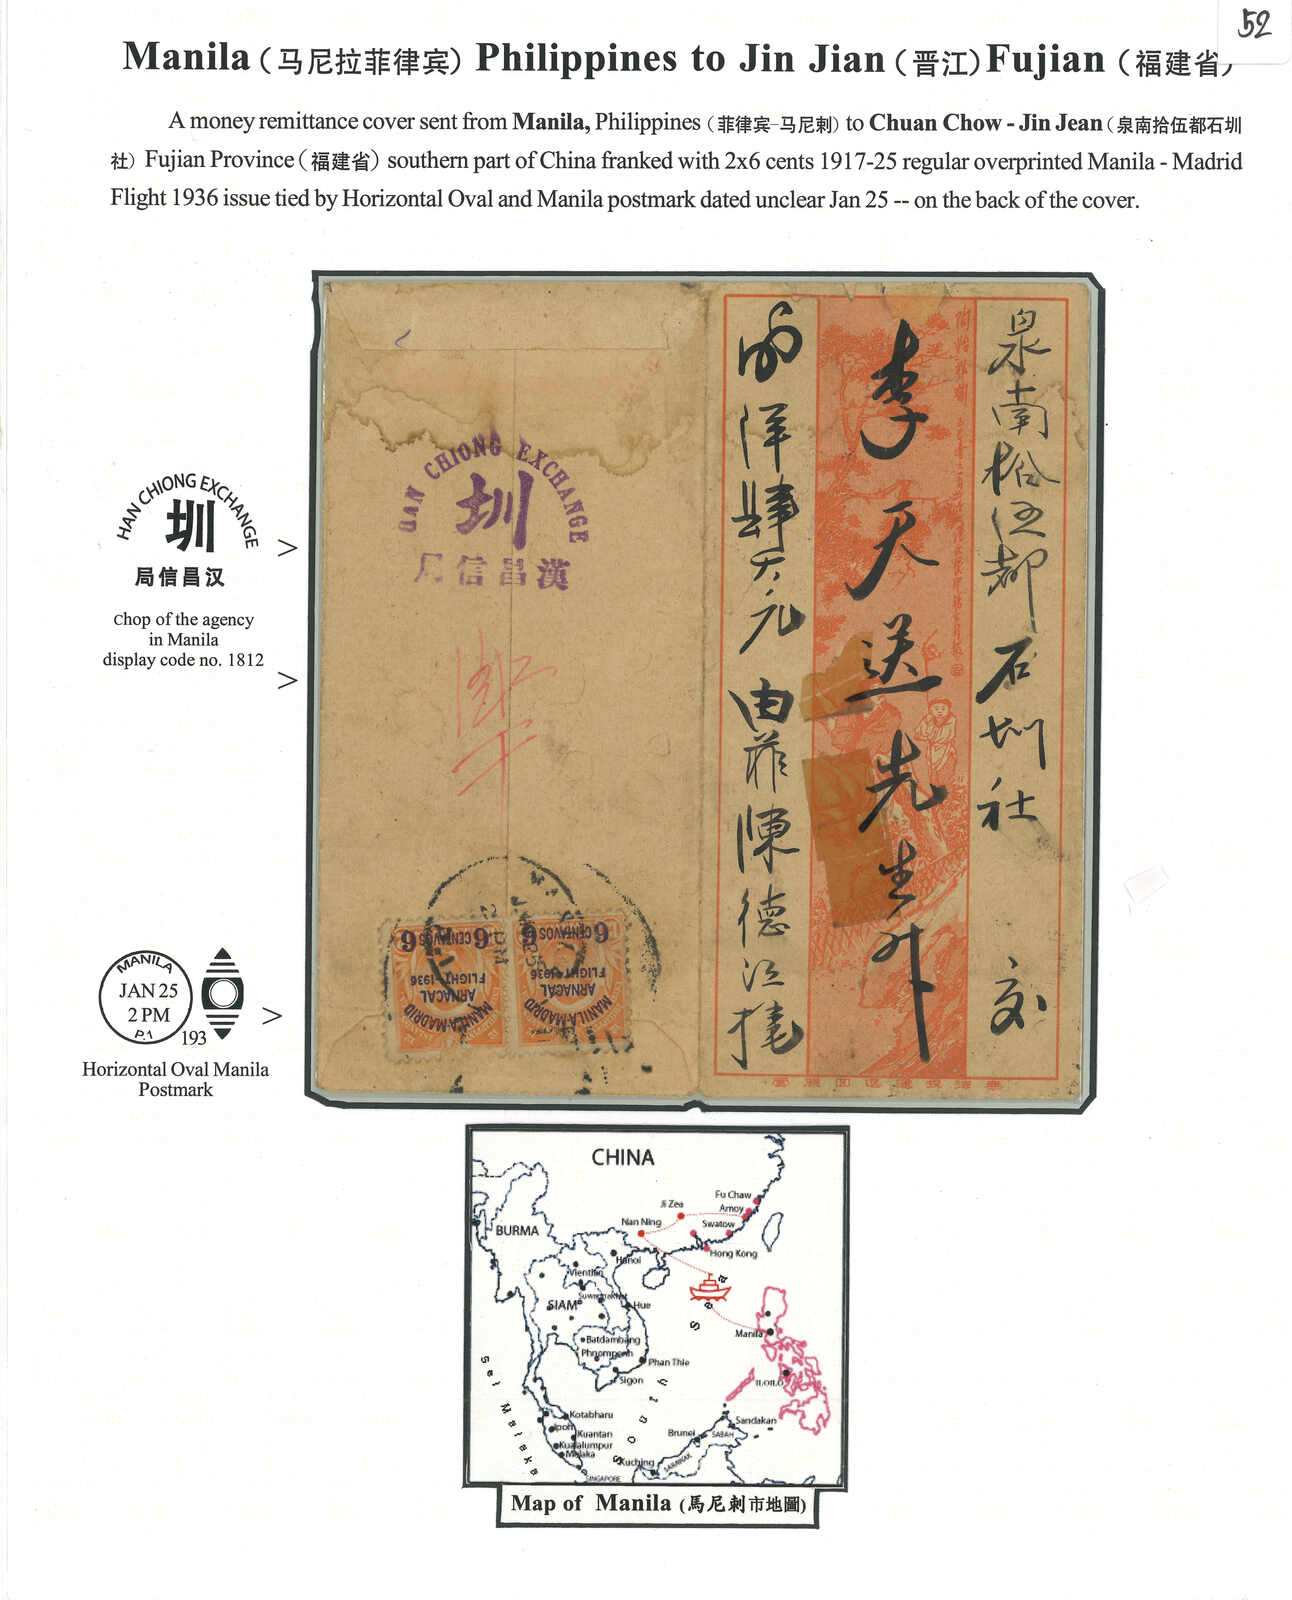 52
Manila (马尼拉菲律宾) Philippines to Jin Jian (晋江) Fujian (福建省)
A money remittance cover sent from Manila, Philippines (菲律宾-马尼剌) to Chuan Chow - Jin Jean (泉南拾伍都石圳
社) Fujian Province (福建省) southern part of China franked with 2x6 cents 1917-25 regular overprinted Manila - Madrid
Flight 1936 issue tied by Horizontal Oval and Manila postmark dated unclear Jan 25 -- on the back of the cover.
HAN CHIONG EXCHANGE
圳
局信昌汉
Chop of the agency
in Manila
display code no. 1812
>
>
MANILA
JAN 25
2 PM
P.I.
193
>
Horizontal Oval Manila
Postmark
HAN CHIONG EXCHANGE
圳
局信昌漢
6 CENTAVOS 6
MANILA-MADRID
ARNACAL
FLIGHT-1936
6 CENTAVOS 6
MANILA-MADRID
ARNACAL
FLIGHT-1936
泉南拾伍都石圳社 交
李天送先生升
洋肆大元 由菲陳德江
CHINA
BURMA
SIAM
Fu Chaw
Amoy
Ji Zea
Swatow
Nan Ning
Hong Kong
Hanoi
Vientian
Hue
Batdambang
Phnompenh
Phan Thie
Sigon
Manila
ILOILO
Kotabharu
Ipoh
Kuantan
Kualalumpur
Melaka
SINGAPORE
Kuching
SARAWAK
Brunei
SABAH
Sandakan
Sel Malaka
Map of Manila (馬尼剌市地圖)